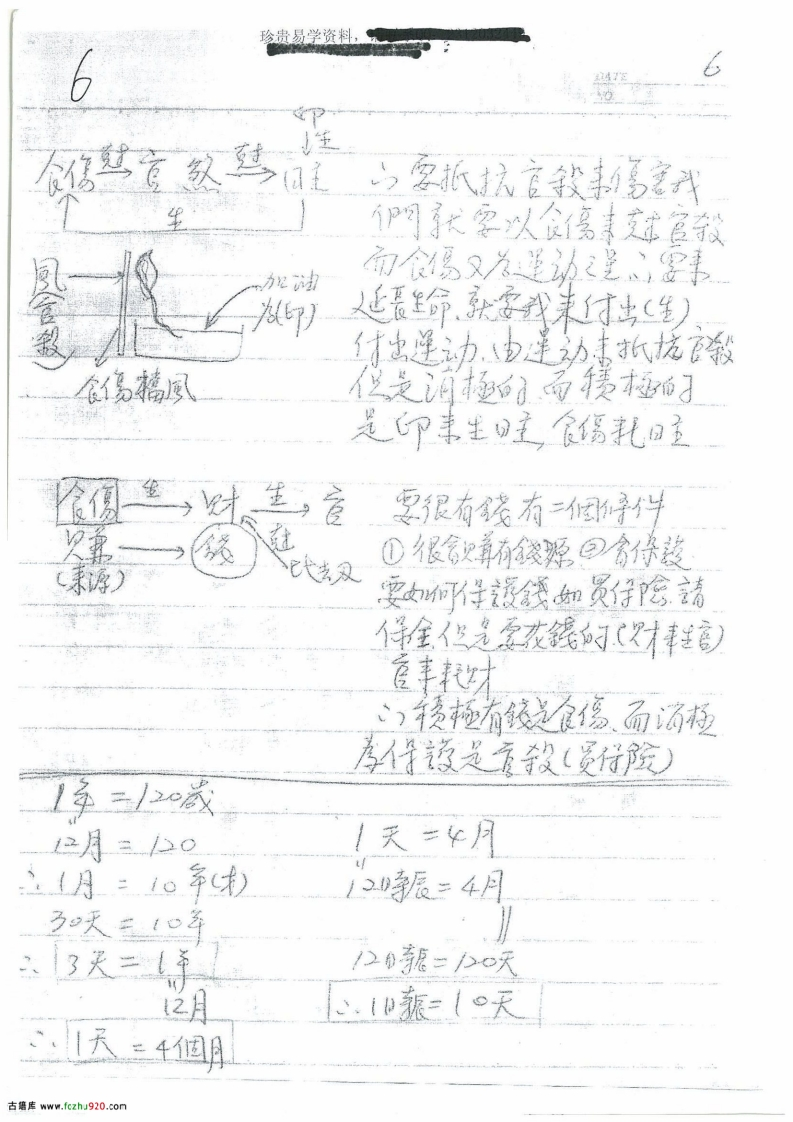 珍贵易学资料，
6
6
印
↓生
食傷 尅→ 官煞 尅→ 日主
生
∴要抵抗官殺来傷害我
們就要以食傷来尅官殺
而食傷又为運动之運∴要来
延長生命、就要我来付出(生)
付出運动、由運动来抵抗官殺
但是消極的、而積極的
是印来生日主、食傷耗日主
風
(官殺)
加油
为(印)
食傷擋風
食傷 生→ 財 生→ 官
賺 → 錢
(来源)
尅
比劫
要很有錢有二個條件
①很會賺有錢源 ②會保護
要如何保護錢如買保險、請
保全但是要花錢的(財来生官)
官来耗財
∴積極有錢是食傷、而消極
为保護是官殺(買保險)
1年=120歲
12月=120
∴1月=10年(才)
30天=10年
∴3天=1年
12月
∴1天=4個月
1天=4月
12時辰=4月
12時辰=120天
∴1時辰=10天
古籍库 www.fozhu920.com